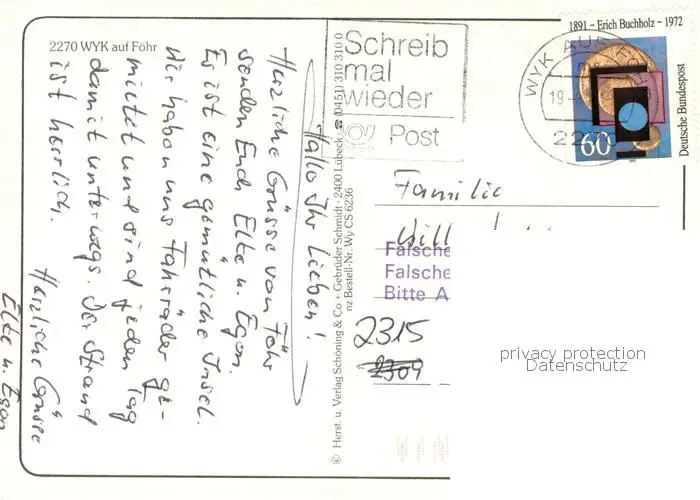 2270 WYK auf Föhr
Hallo Ihr Lieben!
Herzliche Grüsse von Föhr
senden Euch Elke u. Egon.
Es ist eine gemütliche Insel.
Wir haben uns Fahrräder ge-
mietet und sind jeden Tag
damit unterwegs. Der Strand
ist herrlich.
Herzliche Grüsse
Elke u. Egon
© Herst. u. Verlag Schöning & Co + Gebrüder Schmidt · 2400 Lübeck ☎ (0451) 310 310 0
nz Bestell-Nr.: Wy CS 6236
Schreib
mal
wieder
Post
1891 – Erich Buchholz – 1972
Deutsche Bundespost
60
WYK AUF FÖHR
19
22
Familie
Falsche
Falsche
Bitte A
2315
2309
privacy protection
Datenschutz